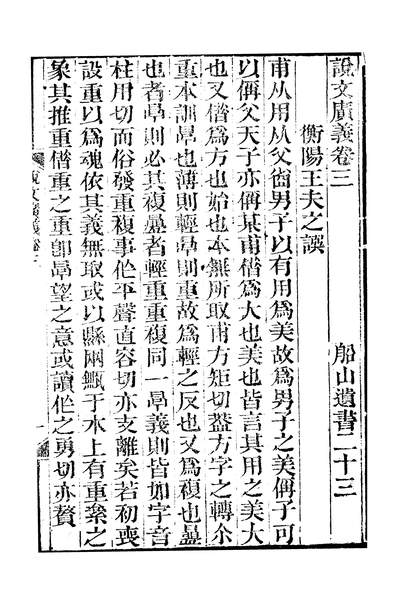 說文廣義卷三
船山遺書二十三
衡陽王夫之譔
甫从用从父啚男子以有用爲美故爲男子之美偁子可
以偁父天子亦偁某甫偺爲大也美也皆言其用之美大
也又偺爲方也始也本無所取甫方矩切葢方字之轉尒
重本訓㫗也薄則輕㫗則重故爲輕之反也又爲複也曡
也者㫗則必其複曡者輕重重複同一㫗義則皆如字音
柱用切而俗發重複事作平聲直容切亦支離矣若初喪
設重以爲魂依其義無取或以縣兩甂于木上有重絫之
象其推重偺重之重卽㫗望之意或讀作之勇切亦贅
說文廣義卷三
一